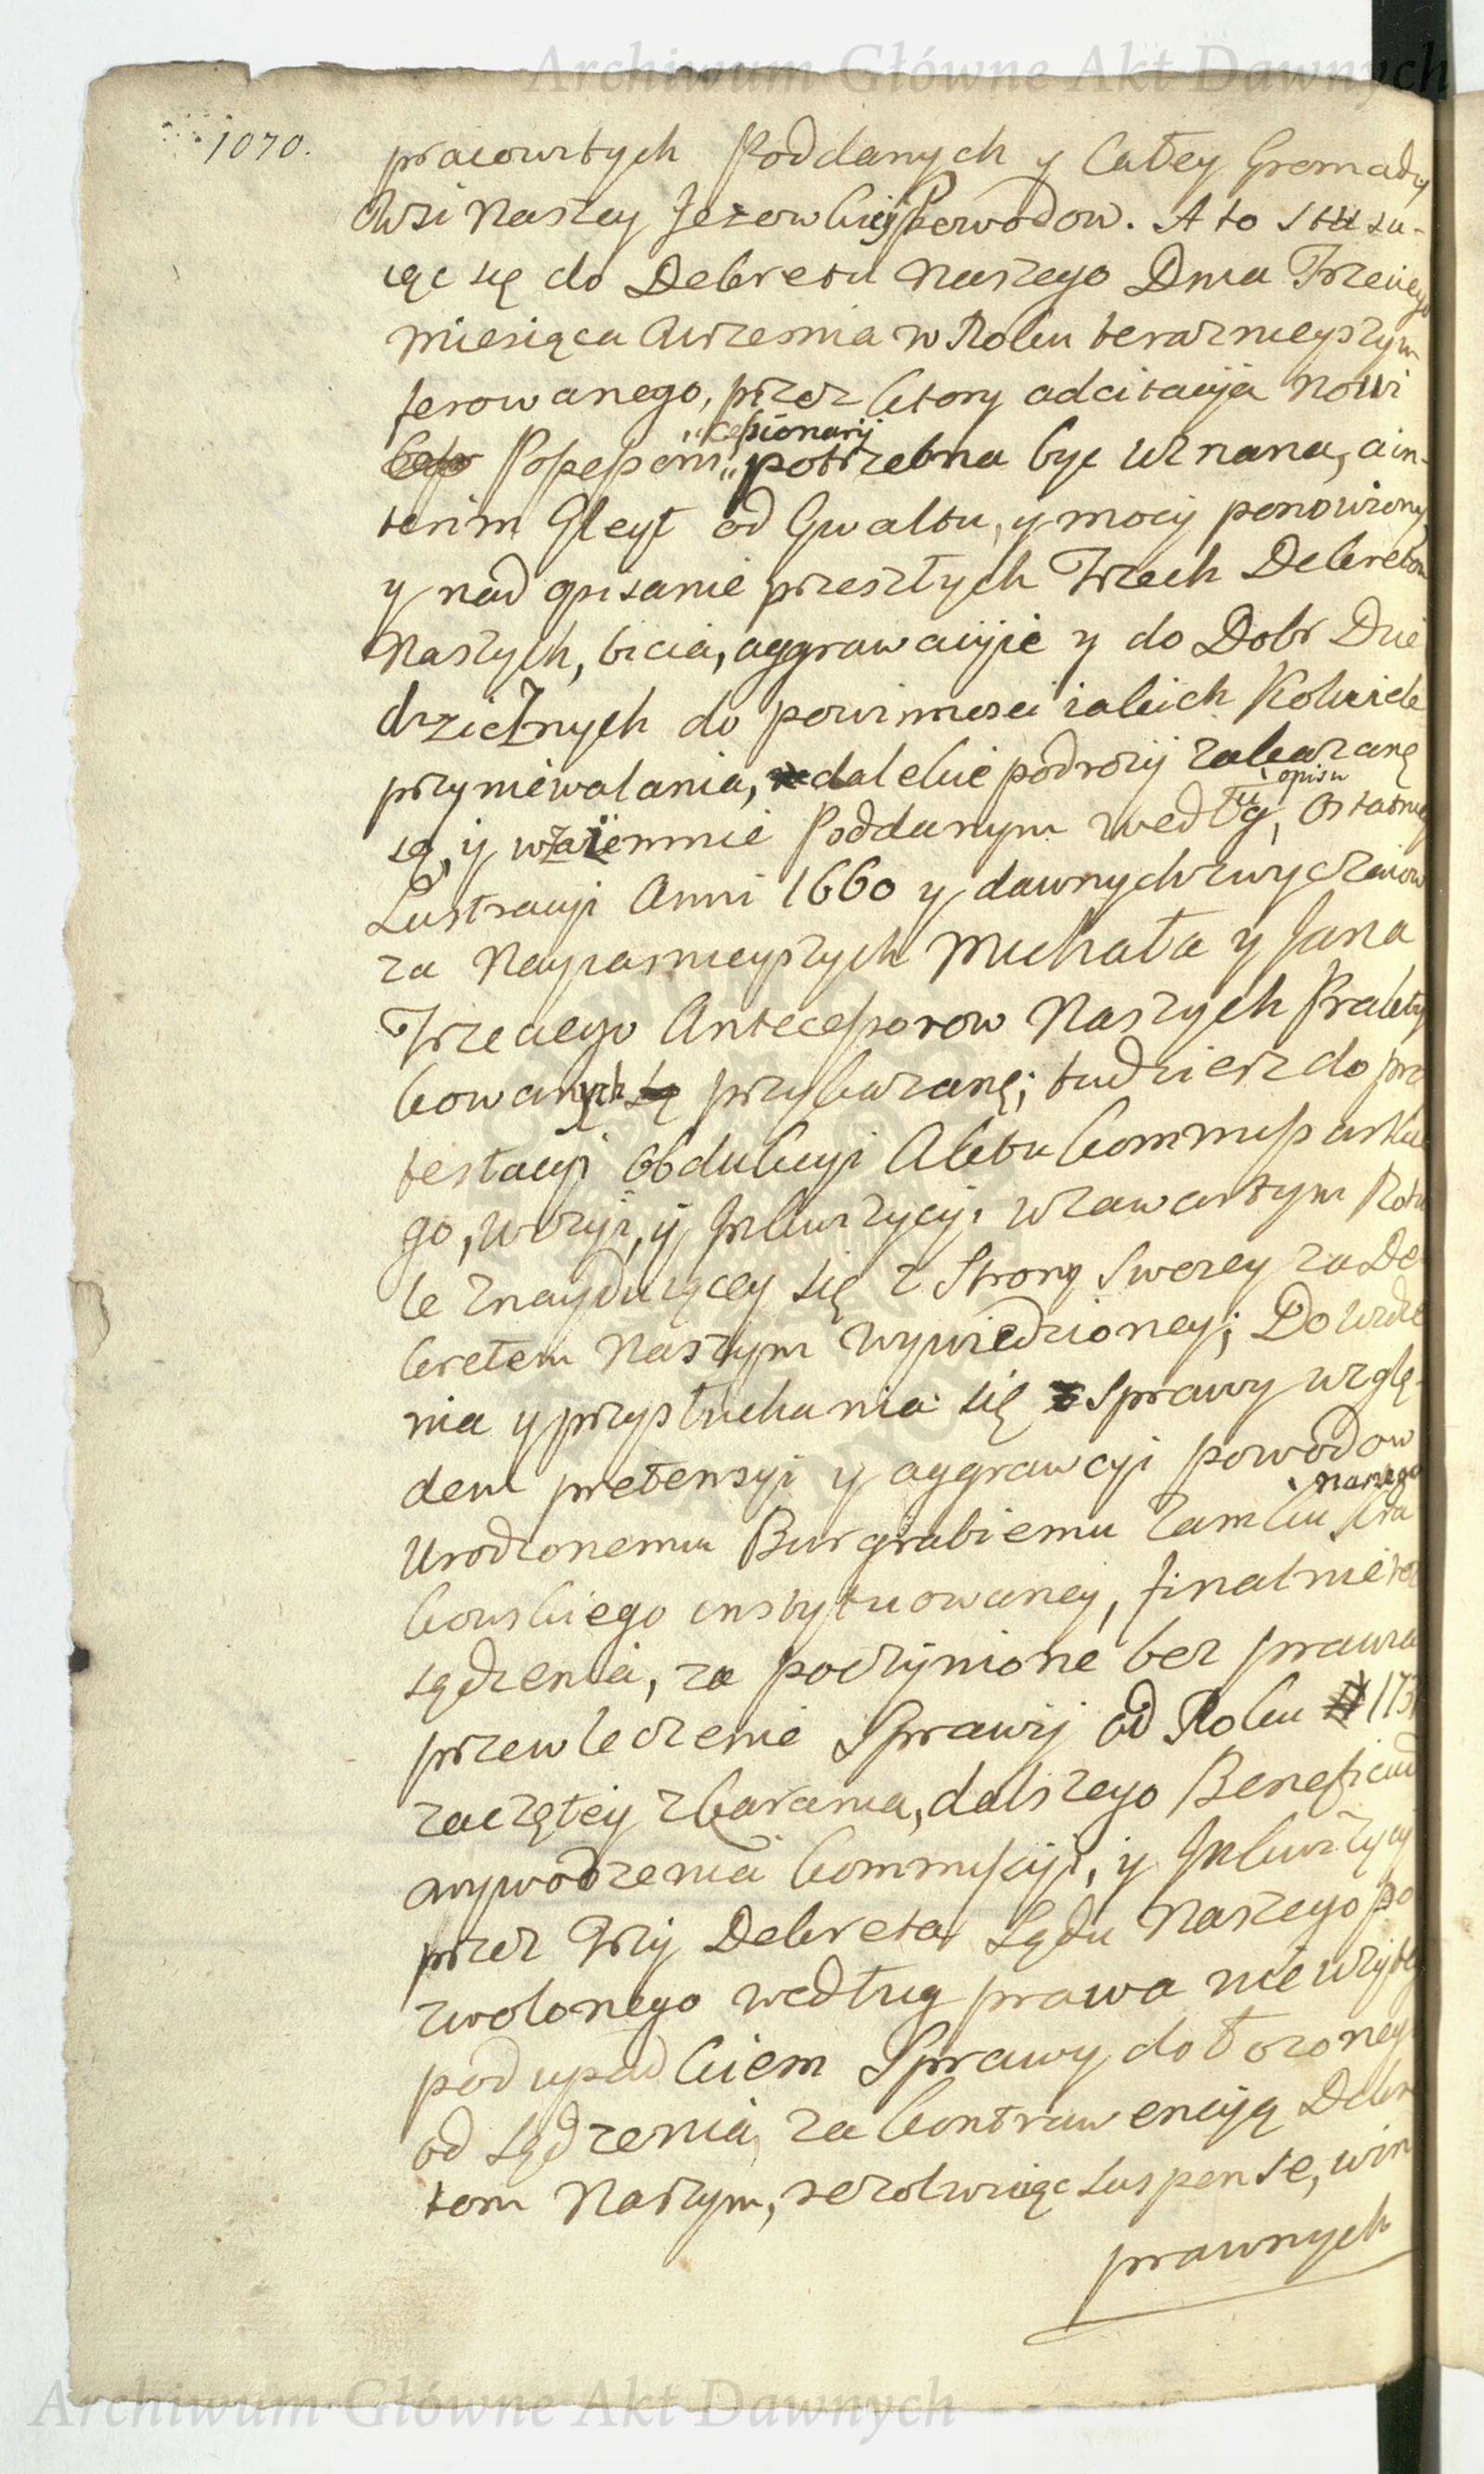 Archiwum Główne Akt Dawnych
1070.
pracowitych Poddanych y Całey Gromady
Wsi Naszey Jezowskiey Powodow. A to stusu-
iąc się do Dekretu Naszego Dnia Trzeciego
Miesiąca Wrzesnia w Roku teraznieyszym
ferowanego, przez ktory adcitacyja Nowi
cessionarij
Possessorii potrzebna byc uznana, a in-
terim Gleyt od Gwałtu, y mocy ponowiony
y nad opisanie przeszłych Trzech Dekretow
Naszych, bicia, aggrawacyie y do Dobr Dzie
dzicznych do powinnosci iakich Kolwiek
przyniewalania, dalekie podrozy zakazane
opisu
są, y wzaiemnie Poddanym według Ostatniey
Lustracyi Anni 1660 y dawnych zwyczaiow
za Nayiasnieyszych Michała y Jana
Trzeciego Antecessorow Naszych Prakty
kowanych przykazane; tudziesz do pro
testacyi Obdukcyi Aktu kommissarskie
go, wizyi, y Inkwizycyi w zawartym Rotu
le znayduiącey się z Strony Swoiey za De
kretem Naszym wywiedzioney; Do widze
nia y przysłuchania się Sprawy wzglę-
dem pretensyi y aggrawacyi powodow
naszego
Urodzonemu Burgrabiemu Zamku Kra
kowskiego instytuowaney, finalnie roz
sądzenia, za poczynione bez prawa
przewleczenie Sprawy od Roku 173
zaczętey zkarania, dalszego Beneficium
wywodzenia kommissyi, y Inkwizycyi
przez Trzy Dekreta Sądu Naszego po
zwolonego według prawa nie wzytey
pod upadkiem Sprawy dołozoney
od sądzenia, za kontrawencyą Dekre
tom Naszym, rezolwuiąc suspense, win
prawnych
Archiwum Główne Akt Dawnych